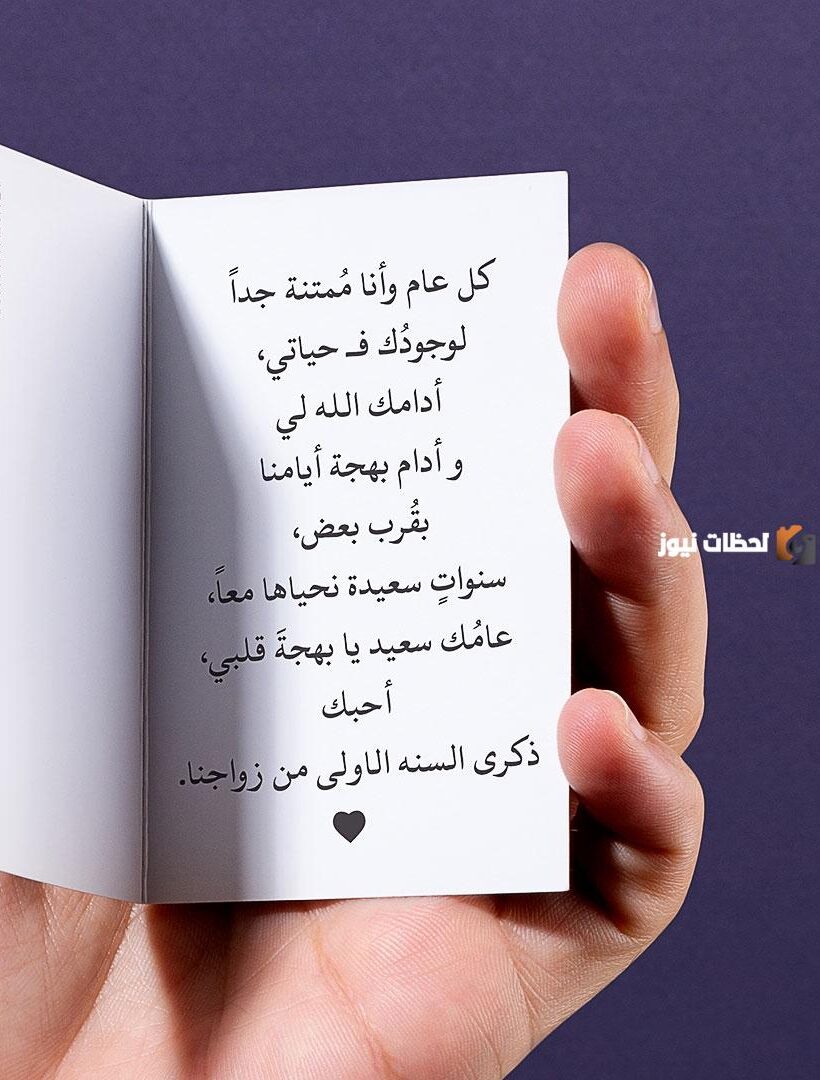 كل عام وأنا مُمتنة جداً
لوجودُك فـ حياتي،
أدامك الله لي
و أدام بهجة أيامنا
بقُرب بعض،
سنواتٍ سعيدة نحياها معاً،
عامُك سعيد يا بهجةَ قلبي،
أحبك
ذكرى السنه الاولى من زواجنا.
لحظات نيوز